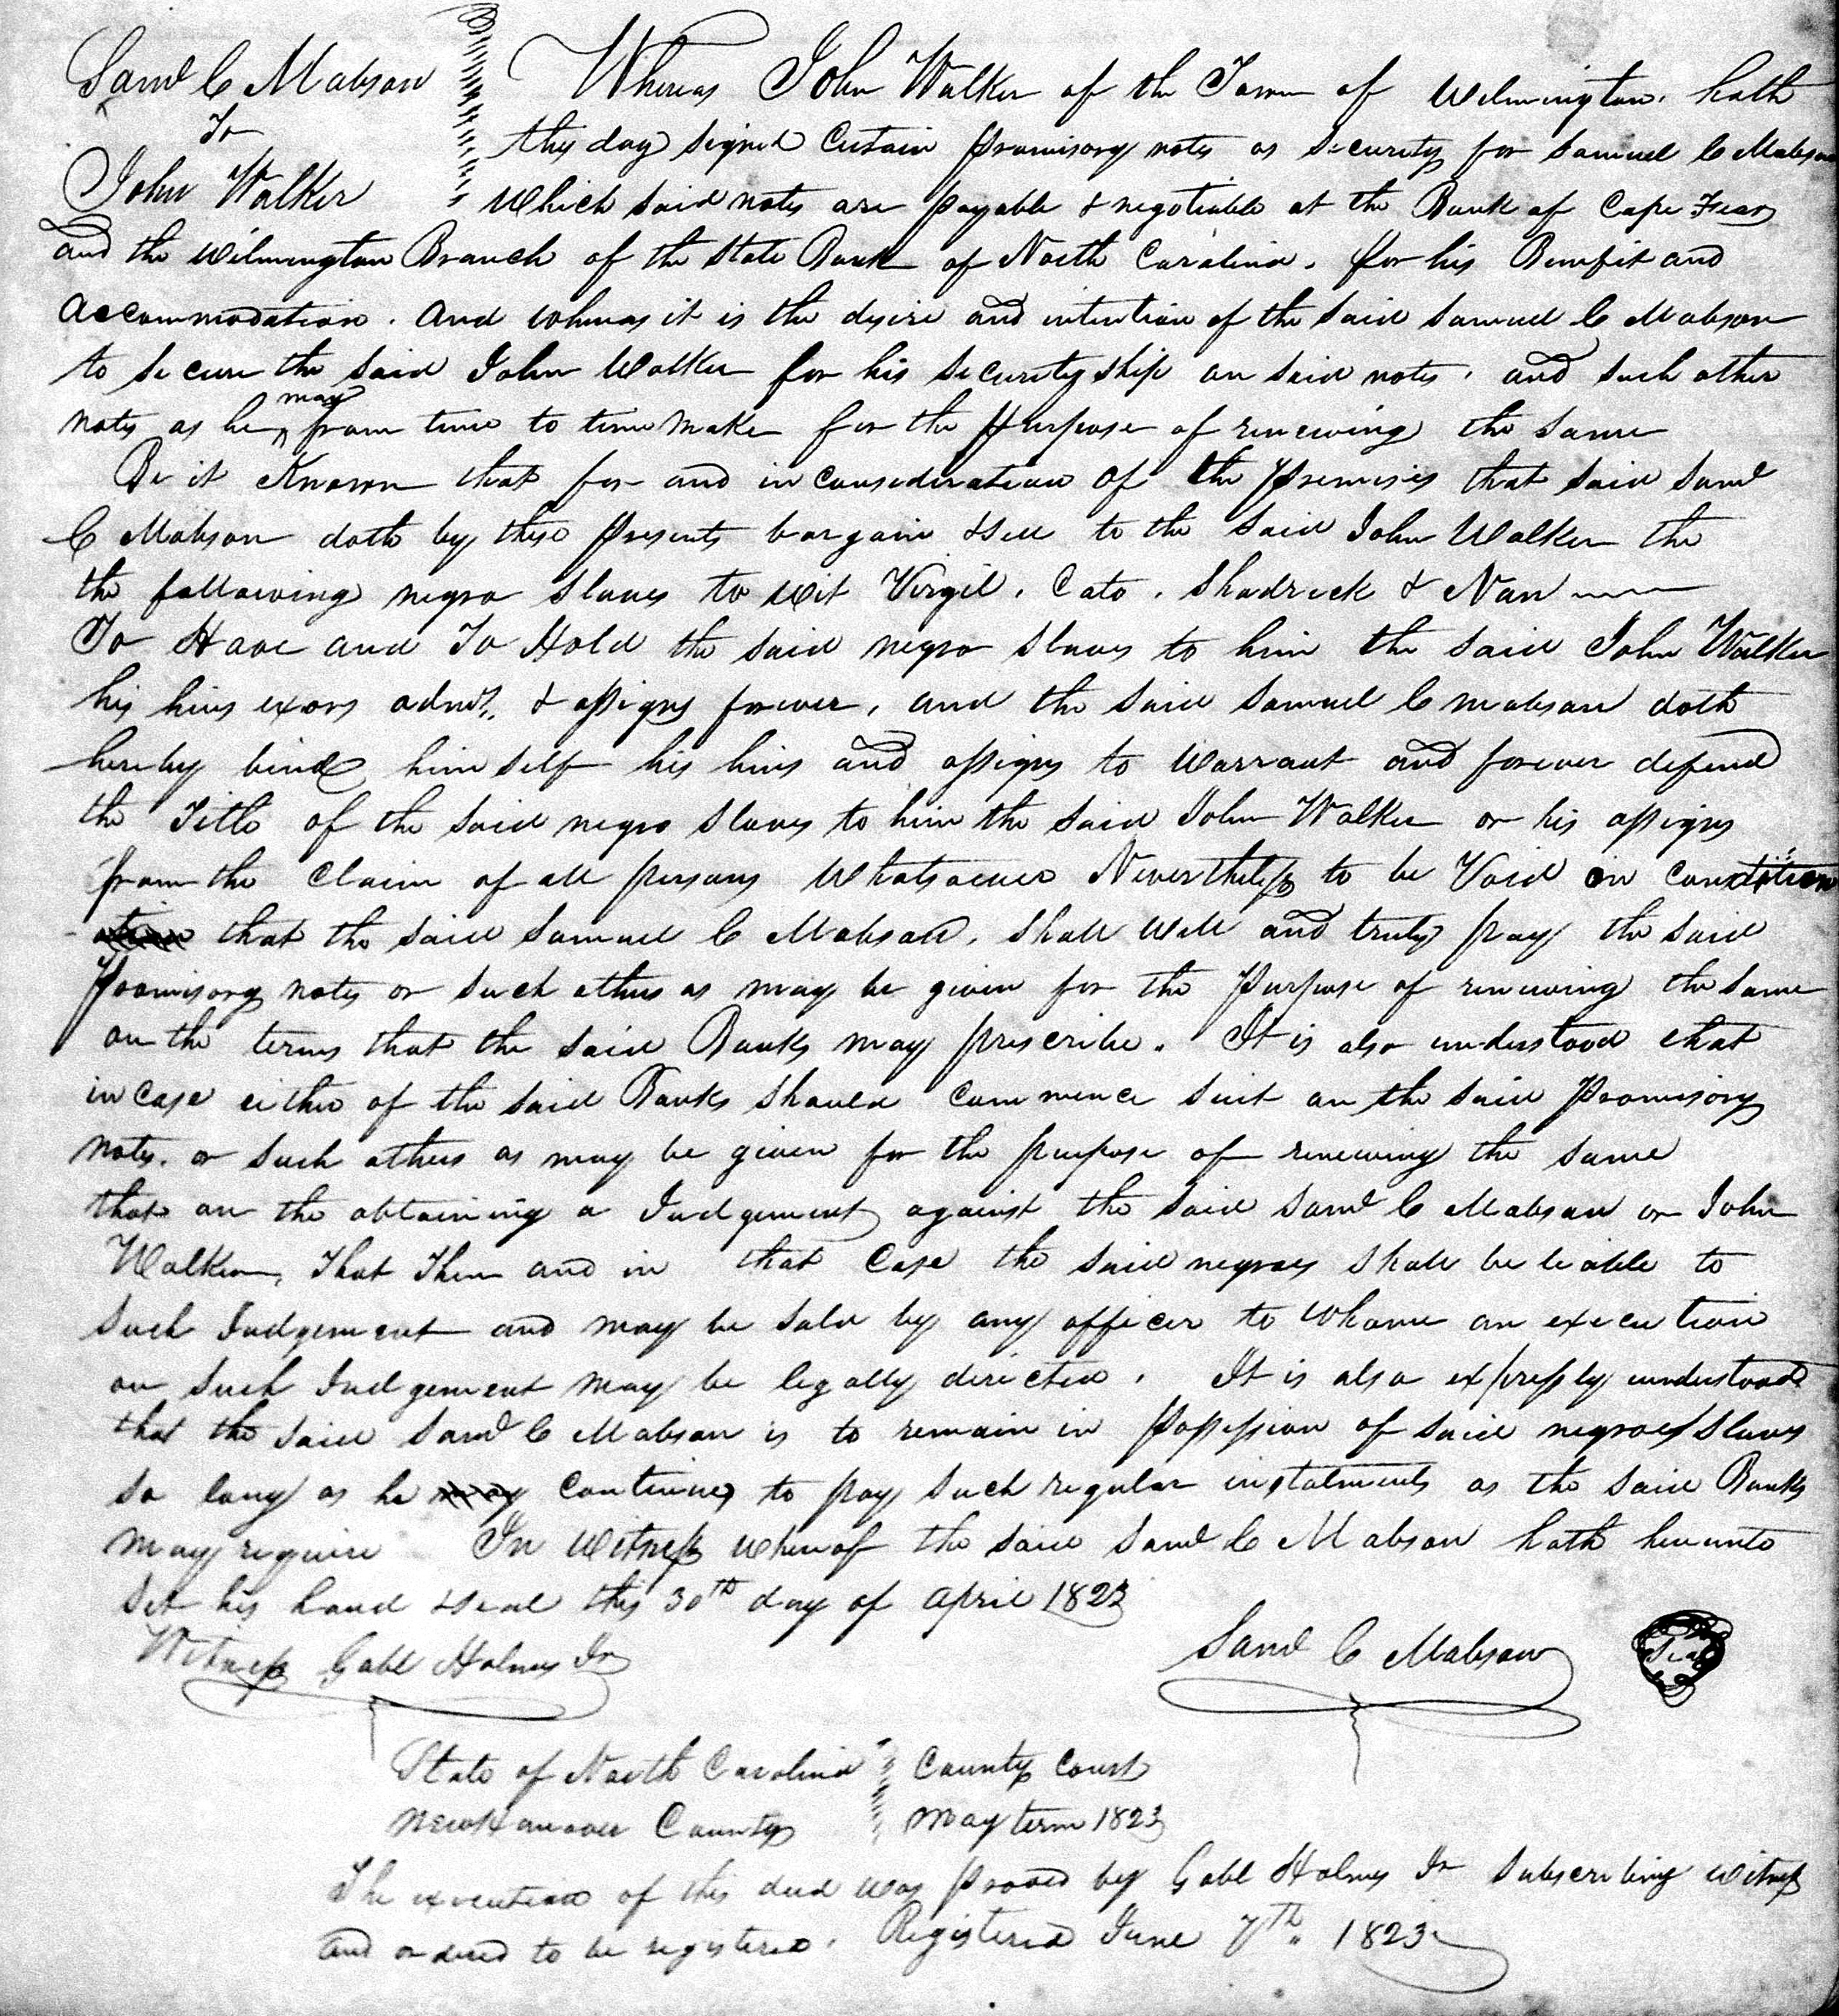 Saml C Mabson
To
John Walker
Whereas John Walker of the Town of Wilmington. hath
this day signed Certain promisory notes as security for Samuel C Mabson
Which said notes are payable & negotiable at the Bank of Cape Fear
and the Wilmington Branch of the State Bank of North Carolina. for his Benefit and
accommodation. And whereas it is the desire and intention of the said Samuel C Mabson
to secure the said John Walker for his security ship on said notes, and such other
notes as he may from time to time make for the purpose of renewing the same
Be it Known that for and in consideration of the premises that said Saml
C Mabson doth by these presents bargain & sell to the said John Walker the
the following negro slaves to wit Virgil, Cato, Shadrick & Nan
To Have and To Hold the said negro slaves to him the said John Walker
his heirs exors admrs. & assigns forever, and the said Samuel C Mabson doth
hereby bind himself his heirs and assigns to Warrant and forever defend
the Title of the said negro slaves to him the said John Walker or his assigns
from the Claim of all persons Whatsoever Nevertheless to be Void on condition
that the said Samuel C Mabson, shall well and truly pay the said
Promisory notes or such others as may be given for the purpose of renewing the same
on the terms that the said Banks may prescribe. It is also understood that
in case either of the said Banks should commence suit on the said Promisory
notes. or such others as may be given for the purpose of renewing the same
that on the obtaining a Judgement against the said Saml C Mabson or John
Walker, That Then and in that Case the said negroes shall be liable to
such Judgement and may be sold by any officer to whome an execution
on such Judgement may be legally directed. It is also expressly understood
that the said Saml C Mabson is to remain in possession of said negroes slaves
so long as he may continues to pay such regular instalments as the said Banks
may require In Witness whereof the said Saml C Mabson hath hereunto
set his hand & seal this 30th day of April 1823
Witness Gabl Holmes Jr
Saml C Mabson
Seal
State of North Carolina County Court
New Hanover County May term 1823
The execution of this deed was proved by Gabl Holmes Jr subscribing witness
and ordered to be registered. Registered June 7th. 1823